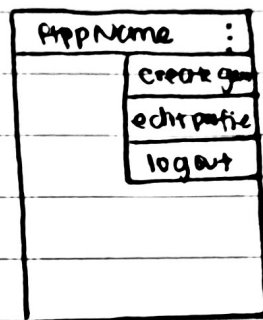 AppName
create gam
edit profie
logout